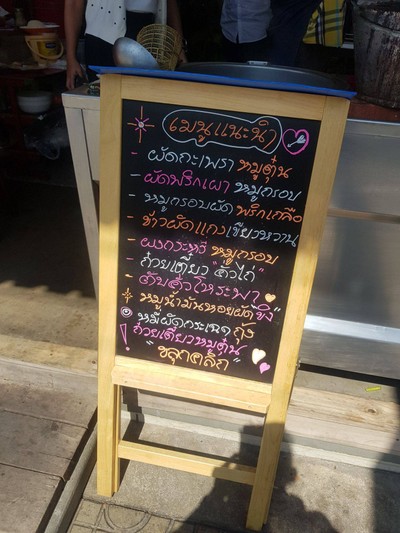 เมนูแนะนำ
- ผัดกะเพรา หมูตุ๋น
- ผัดพริกเผา หมูกรอบ
- หมูกรอบผัด พริกเกลือ
- ข้าวผัดแกงเขียวหวาน
- ผงกระหรี่ หมูกรอบ
- ก๋วยเตี๋ยว "คั่วไก่"
- ตับคั่วโหระพา
หมูน้ำมันหอยผัดขิง
หมี่ผัดกระเฉด กุ้ง
! ก๋วยเตี๋ยวหมูตุ๋น
"ขลุกขลิก"